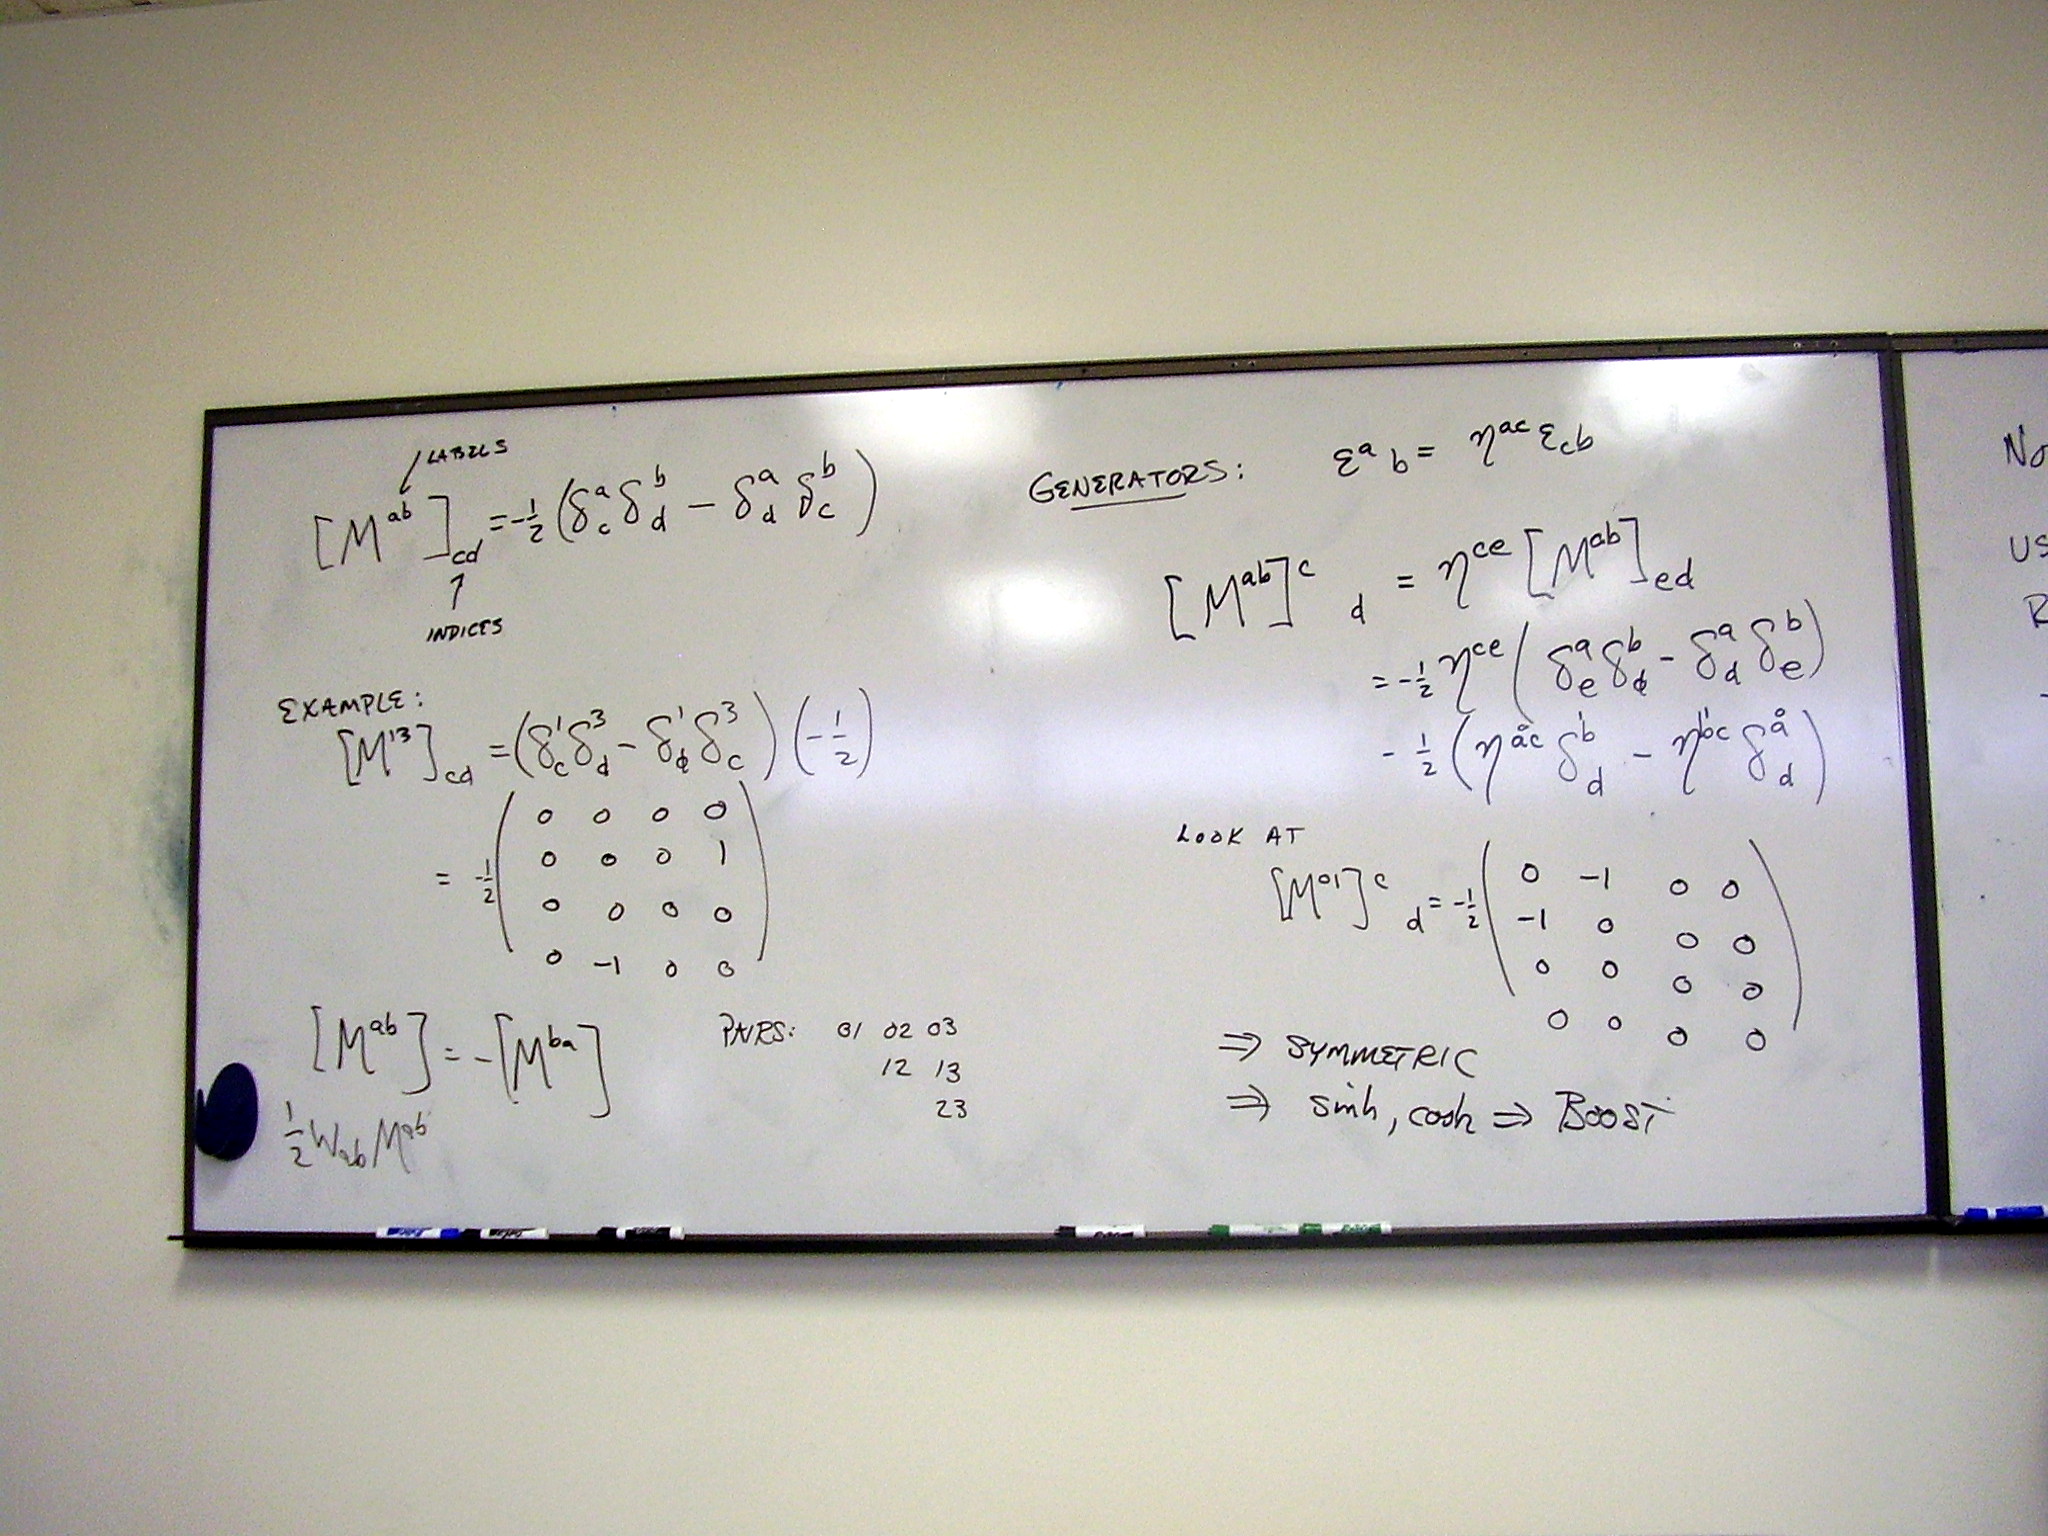 LABELS
[M^{ab}]_{cd} = -1/2 (δ^a_c δ^b_d − δ^a_d δ^b_c)
INDICES
EXAMPLE:
[M^{13}]_{cd} = (δ^1_c δ^3_d − δ^1_d δ^3_c)(−1/2)
= -1/2 (
0 0 0 0
0 0 0 1
0 0 0 0
0 −1 0 0
)
[M^{ab}] = −[M^{ba}]
1/2 W_{ab} M^{ab}
PAIRS: 01 02 03
12 13
23
GENERATORS: ε^a_b = η^{ac} ε_{cb}
[M^{ab}]^c_d = η^{ce} [M^{ab}]_{ed}
= -1/2 η^{ce} (δ^a_e δ^b_d − δ^a_d δ^b_e)
- 1/2 (η^{ac} δ^b_d − η^{bc} δ^a_d)
LOOK AT
[M^{01}]^c_d = -1/2 (
0 −1 0 0
−1 0 0 0
0 0 0 0
0 0 0 0
)
⇒ SYMMETRIC
⇒ sinh, cosh ⇒ BOOST
No
US
R